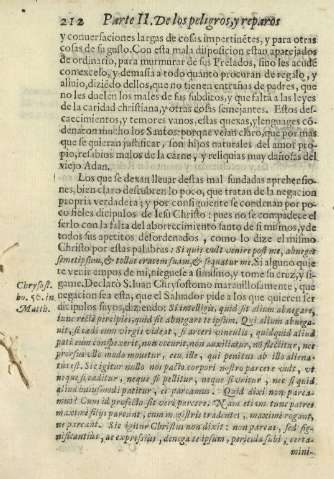 212 Parte II. De los peligros, y reparos
y conuersaciones largas de cosas impertinẽtes, y para otras
cosas de su gusto. Con esta mala disposicion estan aparejados
de ordinario, para murmurar de sus Prelados, sino les acudẽ
con excesso, y demasia a todo quanto procuran de regalo, y
aliuio, diziẽdo dellos, que no tienen entrañas de padres, que
no les duelen los males de sus subditos, y que falta a las leyes
de la caridad christiana, y otras cosas semejantes. Estos des-
caecimientos, y temores vanos, estas quexas, y lenguages cõ-
denaron mucho los Santos: porque veian claro, que por mas
que se quieran justificar, son hijos naturales del amor pro-
pio, resabios malos de la carne, y reliquias muy dañosas del
viejo Adan.
Los que se dexan lleuar destas mal fundadas aprehensio-
nes, bien claro descubren lo poco, que tratan de la negacion
propria verdadera; y por consiguiente se condenan por po-
co fieles dicipulos de Iesu Christo: pues no se compadece el
serlo con la falta del aborrecimiento santo de si mismos, y de
todos sus apetitos desordenados, como lo dize el mismo
Christo por estas palabras: Si quis vult venire post me, abneget
semetipsum, & tollat crucem suam, & sequatur me. Si alguno quie
re venir empos de mi, nieguese a si mismo, y tome su cruz, y si-
game. Declarò S. Iuan Chrysostomo marauillosamente, que
negacion sea esta, que el Saluador pide a los que quieren ser
dicipulos suyos, diziendo: Si intelligis, quid sit alium abnegare,
tunc rectè percipies, quid sit abnegare se ipsum. Qui alium abnega-
uit, si cædi eum virgis videat, si aceri vinculis, quidquid aliud
pati eum conspexerit, non occurit, non auxiliatur, no flectitur, nec
prorsus vllo modo mouetur, eu iste, qui penitus ab illo aliena-
tus est. Sic igitur nullo nos pacto corpori nostro parcere vult, vt
neque si cæditur, neque si pellitur, neque si vritur, nec si quid
aliud huiusmodi patitur, ei parcamus. Quid dixi non parca-
mus? Cum id profecto sit verè parcere. Nam etiam tunc patres
maximè filijs parcunt, cum magistris tradentes, maximè rogant,
ne parcant. Sic igitur Christus non dixit: non parcat, sed sig-
nificantius, ac expressius, deneget se ipsum, periculis subde, certa-
mini-
Chrysost.
ho. 56. in
Matth.